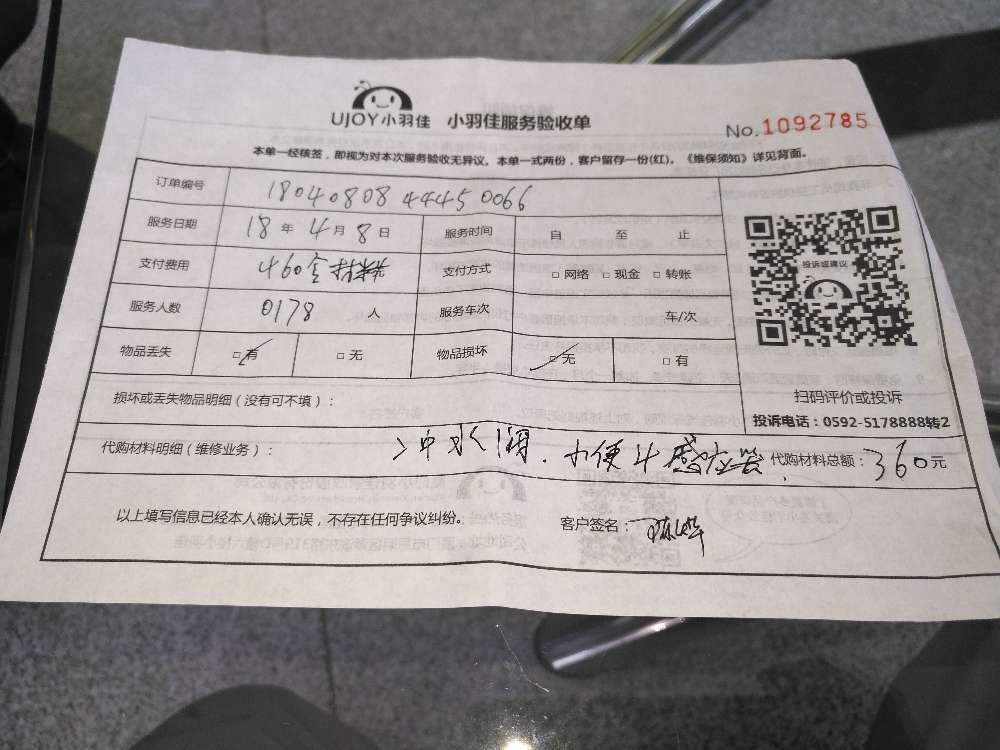 UJOY小羽佳 小羽佳服务验收单 No.1092785
本单一经核签，即视为对本次服务验收无异议。本单一式两份，客户留存一份(红)。《维保须知》详见背面。
订单编号 18040808 4445 0066
服务日期 18 年 4 月 8 日 服务时间 自 至 止
支付费用 460含材料 支付方式 □ 网络 □ 现金 □ 转账
服务人数 0178 人 服务车次 车/次
物品丢失 □ 有 □ 无 物品损坏 □ 无 □ 有
投诉或建议
扫码评价或投诉
投诉电话：0592-5178888转2
损坏或丢失物品明细（没有可不填）：
代购材料明细（维修业务）： 冲水阀．小便斗感应器 代购材料总额：360元
以上填写信息已经本人确认无误，不存在任何争议纠纷。 客户签名：